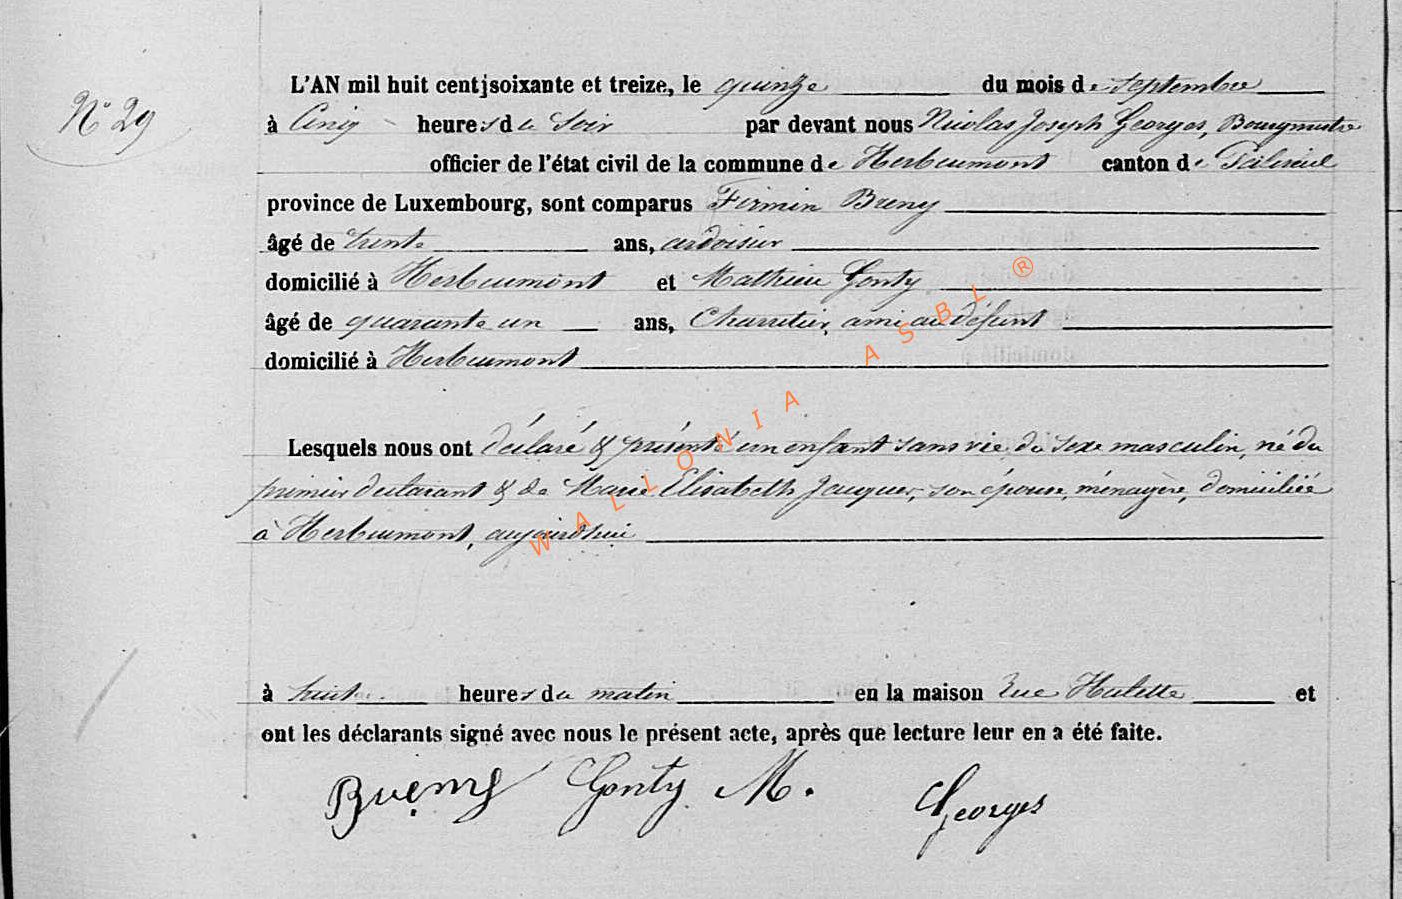 L'AN mil huit cent soixante et treize, le quinze du mois de septembre
N° 29
à Cinq heures du Soir par devant nous Nicolas Joseph Georges, Bourgmestre
officier de l'état civil de la commune de Herbeumont canton de Paliseul
province de Luxembourg, sont comparus Firmin Breny
âgé de trente ans, ardoisier
domicilié à Herbeumont et Mathieu Gonty
âgé de quarante un ans, Charretier, ami au défunt
domicilié à Herbeumont
Lesquels nous ont déclaré & présenté un enfant sans vie, du sexe masculin, né du
premier déclarant & de Marie Elisabeth Jacques, son épouse, ménagère, domiciliée
à Herbeumont, aujourd'hui
WALLONIA ASBL ®
à huit heures du matin en la maison rue Hulette et
ont les déclarants signé avec nous le présent acte, après que lecture leur en a été faite.
Breny Gonty M. Georges